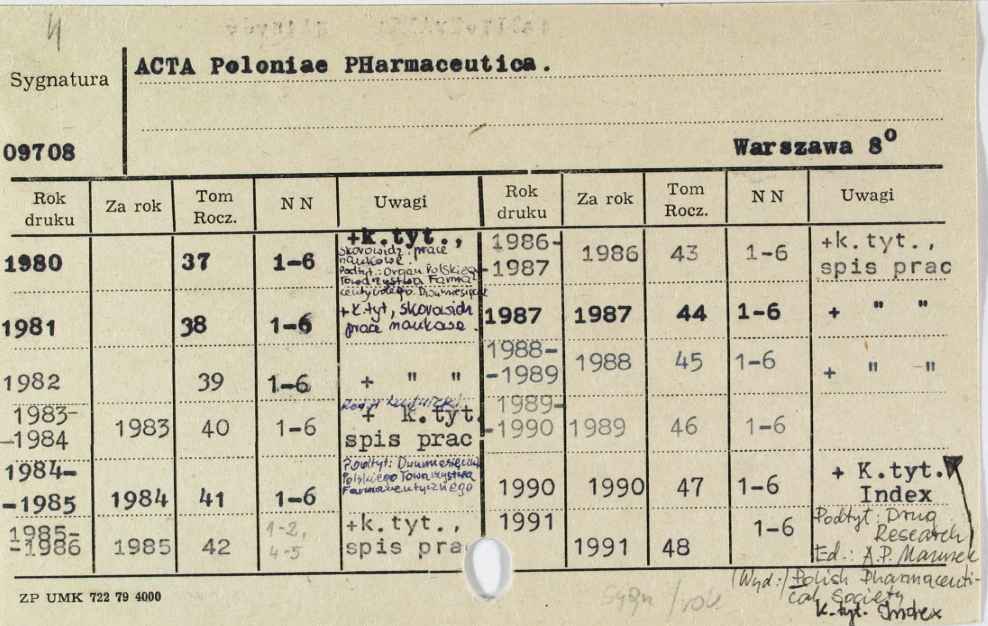 4
Sygnatura
ACTA Poloniae PHarmaceutica.
09708
Warszawa 8º
Rok druku | Za rok | Tom Rocz. | NN | Uwagi | Rok druku | Za rok | Tom Rocz. | NN | Uwagi
1980 37 1-6 +k.tyt.,
skorowidz: prace
naukowe.
Podtyt.: Organ Polskiego
Towarzystwa Farma
ceutycznego. Dwumiesięcz
1981 38 1-6 +k.tyt, skorowidz
prace naukowe.
1982 39 1-6 + " "
1983-
-1984 1983 40 1-6 + k.tyt.
spis prac
1984-
-1985 1984 41 1-6 Podtyt: Dwumiesięcznik
Polskiego Towarzystwa
Farmaceutycznego
1985-
-1986 1985 42 1-2,
4-5 +k.tyt.,
spis prac
1986-
-1987 1986 43 1-6 +k.tyt.,
spis prac
1987 1987 44 1-6 + " "
1988-
-1989 1988 45 1-6 + " -"
1989-
-1990 1989 46 1-6
1990 1990 47 1-6 + K.tyt.
Index
1991 1991 48 1-6 Podtyt: Drug
Research
Ed.: A.P.
(Wyd:) Polish Pharmaceuti-
cal Society
K.tyt. Index
ZP UMK 722 79 4000
sygn / rok